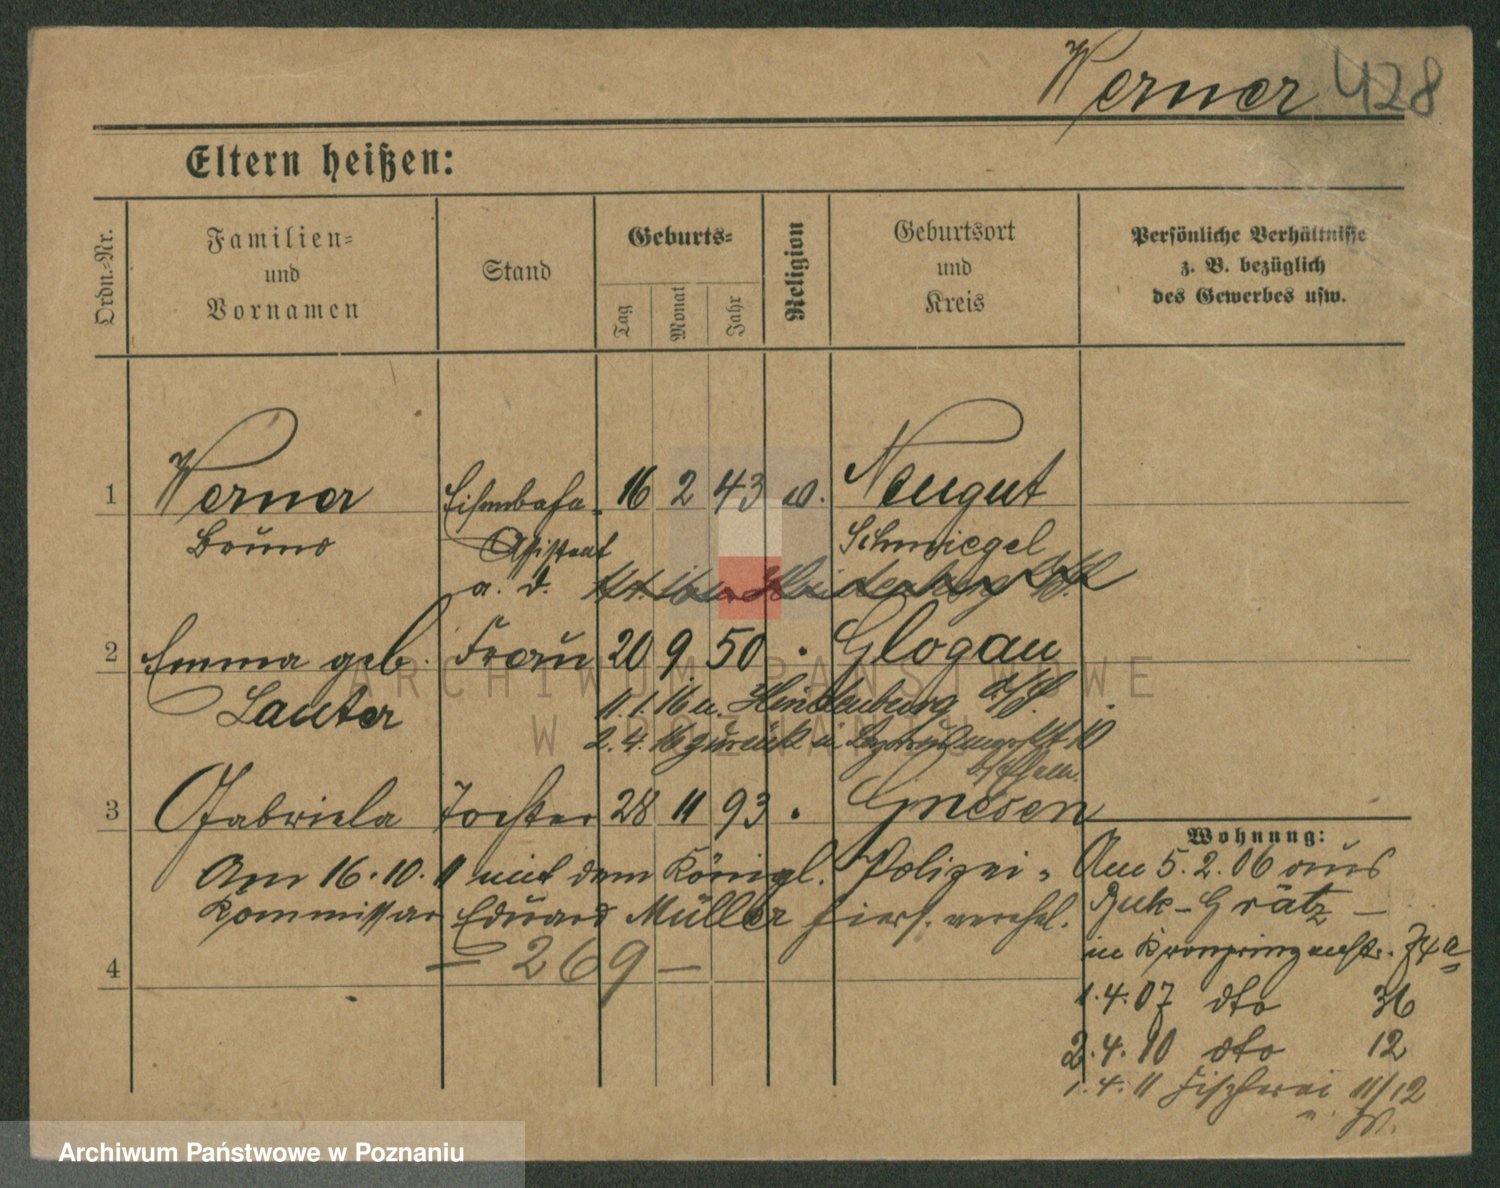 Werner 428
Eltern heißen:
Ordn.-Nr.
Familien-
und
Vornamen
Stand
Geburts-
Tag
Monat
Jahr
Religion
Geburtsort
und
Kreis
Persönliche Verhältnisse
z. B. bezüglich
des Gewerbes usw.
1 Werner Eisenbahn- 16 2 43 Neugut
Bruno Assistent Schmiegel
a. D.
2 Emma geb. Frau 20 9 50 Glogau
Lauter
11.1.16 n. Hindenburg O/S.
2.4.16 zurück
3 Gabriela Tochter 28 11 93 Gnesen
Am 16.10.11 mit dem Königl. Polizei-
Kommissar Eduard Müller hiers. verehel.
— 269 —
4
Wohnung:
Am 5.2.06 aus
Buk-Grätz —
in Kronprinzenstr. 74a
1.4.07 dto 36
2.4.10 dto 12
1.4.11 Fischerei 11/12
ARCHIWUM PAŃSTWOWE
W POZNANIU
Archiwum Państwowe w Poznaniu